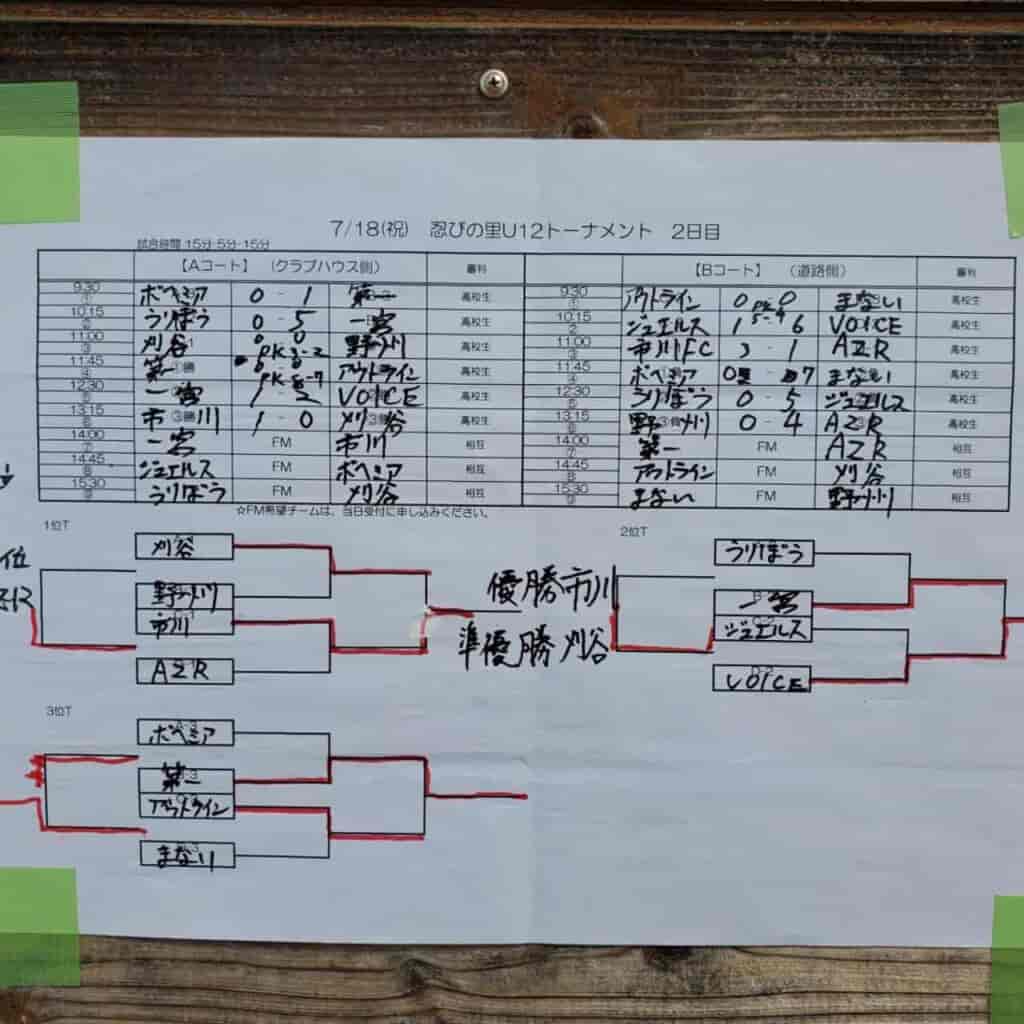 7/18(祝) 忍びの里U12トーナメント 2日目
試合時間 15分-5分-15分
【Aコート】 (クラブハウス側) 審判 【Bコート】 (道路側) 審判
9:30 ① ボヘミア 0 - 1 第一 高校生 9:30 ① アウトライン 0 PK 0 まない 高校生
10:15 ② うりぼう 0 - 5 一宮 高校生 10:15 2 ジュエルス 1 5-4 6 VOICE 高校生
11:00 ③ 刈谷 0 0 PK 3-2 野々川 高校生 11:00 ③ 市川FC 3 - 1 AZR 高校生
11:45 ④ 第一 0 - 0 PK 8-7 アウトライン 高校生 11:45 ④ ボヘミア 0 - 7 まない 高校生
12:30 ⑤ 一宮 1 - 2 VOICE 高校生 12:30 ⑤ うりぼう 0 - 5 ジュエルス 高校生
13:15 6 市川 1 - 0 刈谷 高校生 13:15 6 野々川 0 - 4 AZR 高校生
14:00 ⑦ 一宮 FM 市川 相互 14:00 ⑦ 第一 FM AZR 相互
14:45 ⑧ ジュエルス FM ボヘミア 相互 14:45 ⑧ アウトライン FM 刈谷 相互
15:30 ⑨ うりぼう FM 刈谷 相互 15:30 ⑨ まない FM 野々川 相互
☆FM希望チームは、当日受付に申し込みください。
1位T
2位T
刈谷
うりぼう
位
野々川
優勝 市川
一宮
市川
ジュエルス
準優勝 刈谷
AZR
VOICE
3位T
ボヘミア
第一
アウトライン
まない